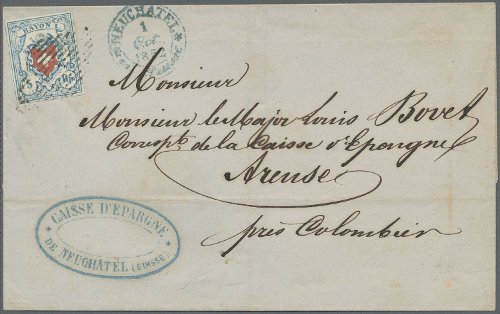 RAYON I
NEUCHATEL
1
Monsieur
Monsieur le Major Louis Bovet
Corresp.t de la Caisse d'Epargne
Areuse
près Colombier
CAISSE D'EPARGNE
DE NEUCHÂTEL (SUISSE)